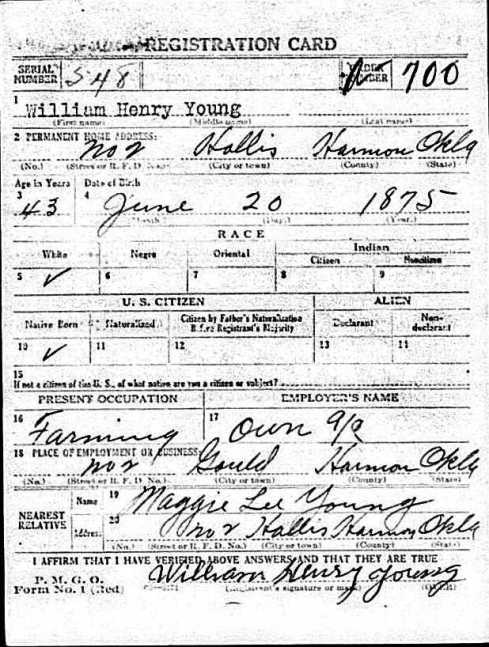 REGISTRATION CARD
SERIAL NUMBER 548 ORDER NUMBER 700
1 William Henry Young
(First name) (Middle name) (Last name)
2 PERMANENT HOME ADDRESS:
No 2 Hollis Harmon Okla
(No.) (Street or R. F. D. No.) (City or town) (County) (State)
Age in Years Date of Birth
3 43 4 June 20 1875
(Month.) (Day.) (Year.)
RACE
White Negro Oriental Indian
Citizen Noncitizen
5 ✓ 6 7 8 9
U. S. CITIZEN ALIEN
Native Born Naturalized Citizen by Father's Naturalization Before Registrant's Majority Declarant Non-declarant
10 ✓ 11 12 13 14
15
If not a citizen of the U. S., of what nation are you a citizen or subject?
PRESENT OCCUPATION EMPLOYER'S NAME
16 Farming 17 Own
18 PLACE OF EMPLOYMENT OR BUSINESS:
No 2 Gould Harmon Okla
(No.) (Street or R. F. D. No.) (City or town) (County) (State)
NEAREST RELATIVE Name 19 Maggie Lee Young
Address 20 No 2 Hollis Harmon Okla
(No.) (Street or R. F. D. No.) (City or town) (County) (State)
I AFFIRM THAT I HAVE VERIFIED ABOVE ANSWERS AND THAT THEY ARE TRUE
P. M. G. O.
Form No. 1 (Red) William Henry Young
(Registrant's signature or mark) (OVER)